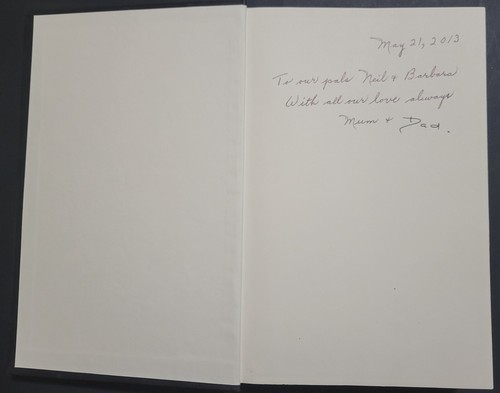 May 21, 2013
To our pals Neil + Barbara
With all our love always
Mum + Dad.